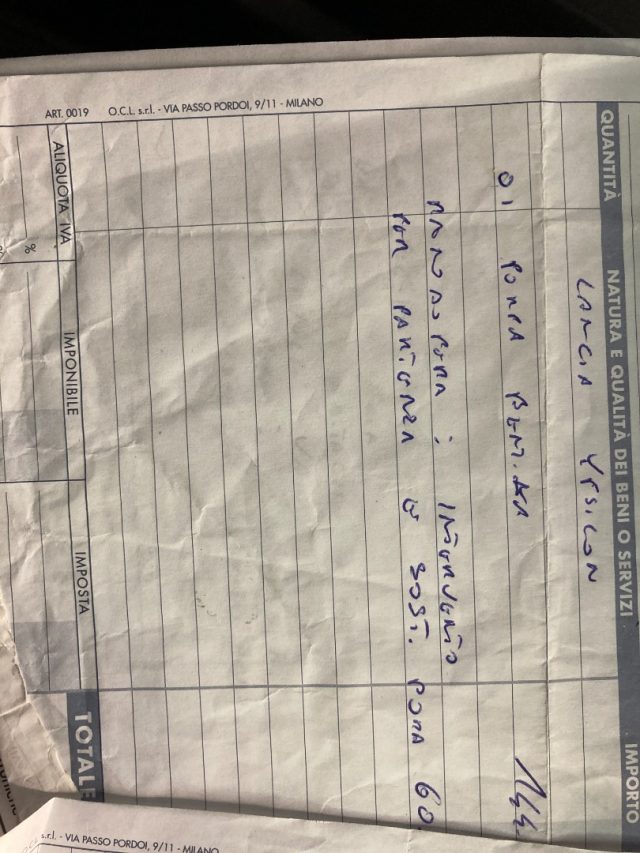 QUANTITÀ NATURA E QUALITÀ DEI BENI O SERVIZI IMPORTO
LANCIA YPSILON
01 POMPA 144
MANODOPERA : INTERVENTO
PER PARTENZA E SOST. POMPA 60
ALIQUOTA IVA IMPONIBILE IMPOSTA TOTALE
%
%
ART. 0019 O.C.L. s.r.l. - VIA PASSO PORDOI, 9/11 - MILANO
s.r.l. - VIA PASSO PORDOI, 9/11 - MILANO